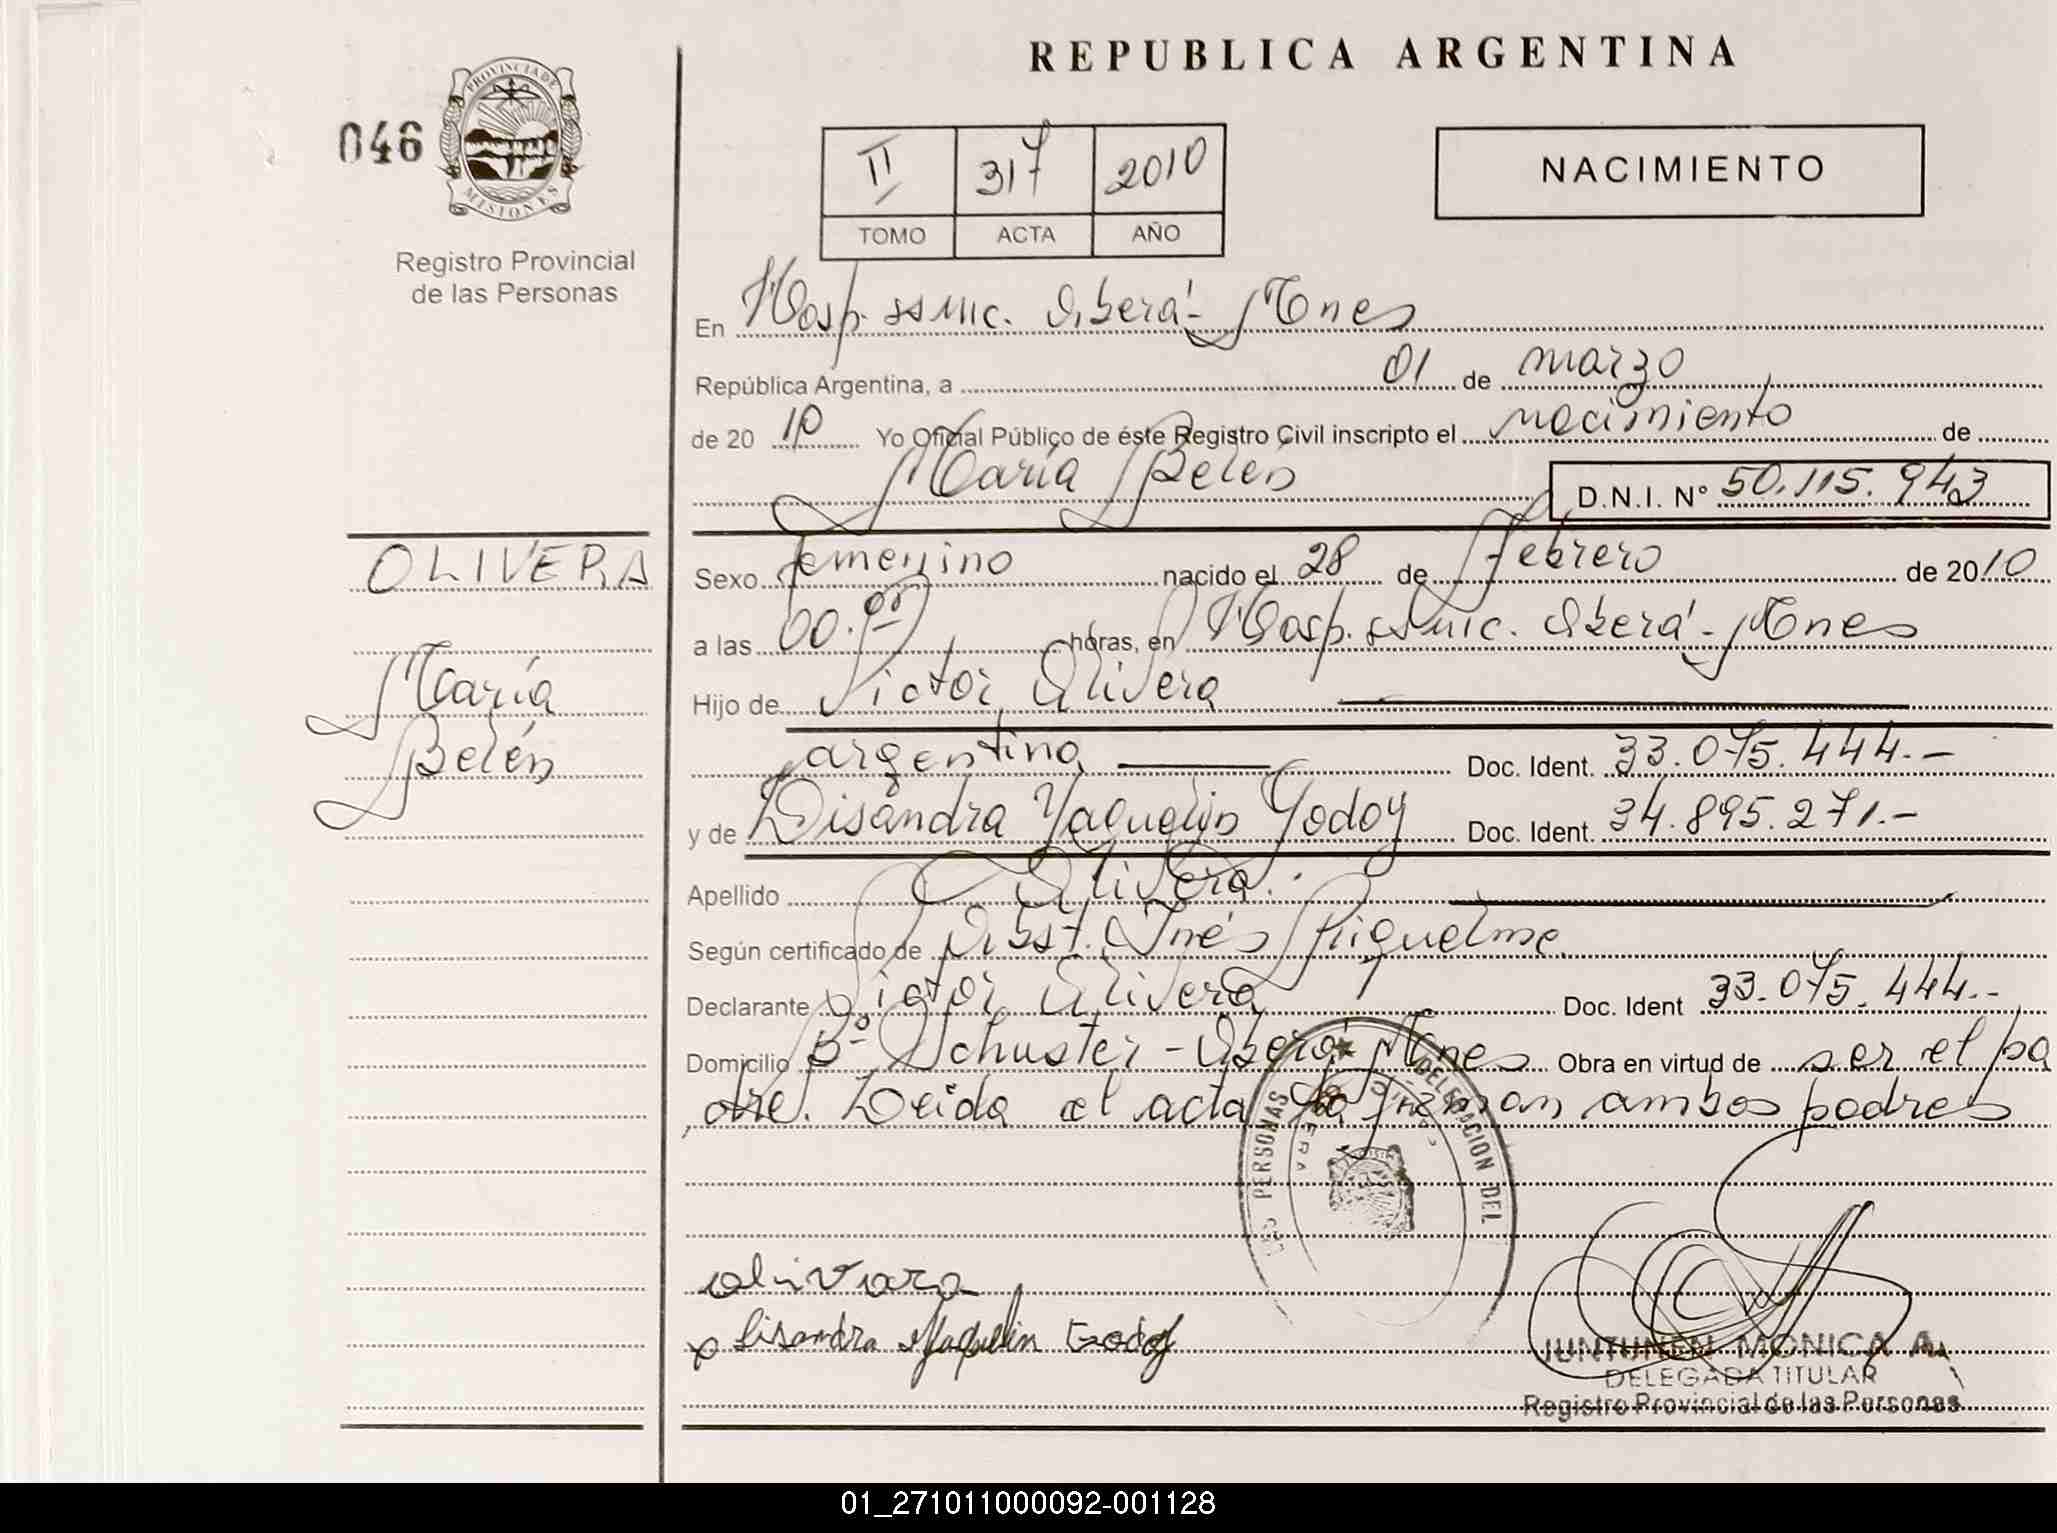 REPUBLICA ARGENTINA
046
PROVINCIA DE
MISIONES
Registro Provincial
de las Personas
II 317 2010
TOMO ACTA AÑO
NACIMIENTO
En Hosp. ssmic. Oberá - Mnes
República Argentina, a 01 de marzo
de 2010 Yo Oficial Público de éste Registro Civil inscripto el nacimiento de
María Belén D.N.I. N° 50.115.943
OLIVERA
María
Belén
Sexo femenino nacido el 28 de Febrero de 2010
a las 00. horas, en Hosp. ssmic. Oberá - Mnes
Hijo de Victor Olivera
argentina Doc. Ident. 33.075.444.-
y de Lisandra Yaquelin Godoy Doc. Ident. 34.895.271.-
Apellido Olivera.
Según certificado de Obst. Inés Riquelme.
Declarante Victor Olivera Doc. Ident 33.075.444.-
Domicilio Bº Schuster - Oberá Mnes Obra en virtud de ser el pa
dre. Leida el acta la firman ambos padres
DELEGACION DEL
PERSONAS
olivara
Lisandra Yaquelin Godoy
JUNTUNEN MONICA A.
DELEGADA TITULAR
Registro Provincial de las Personas
01_271011000092-001128